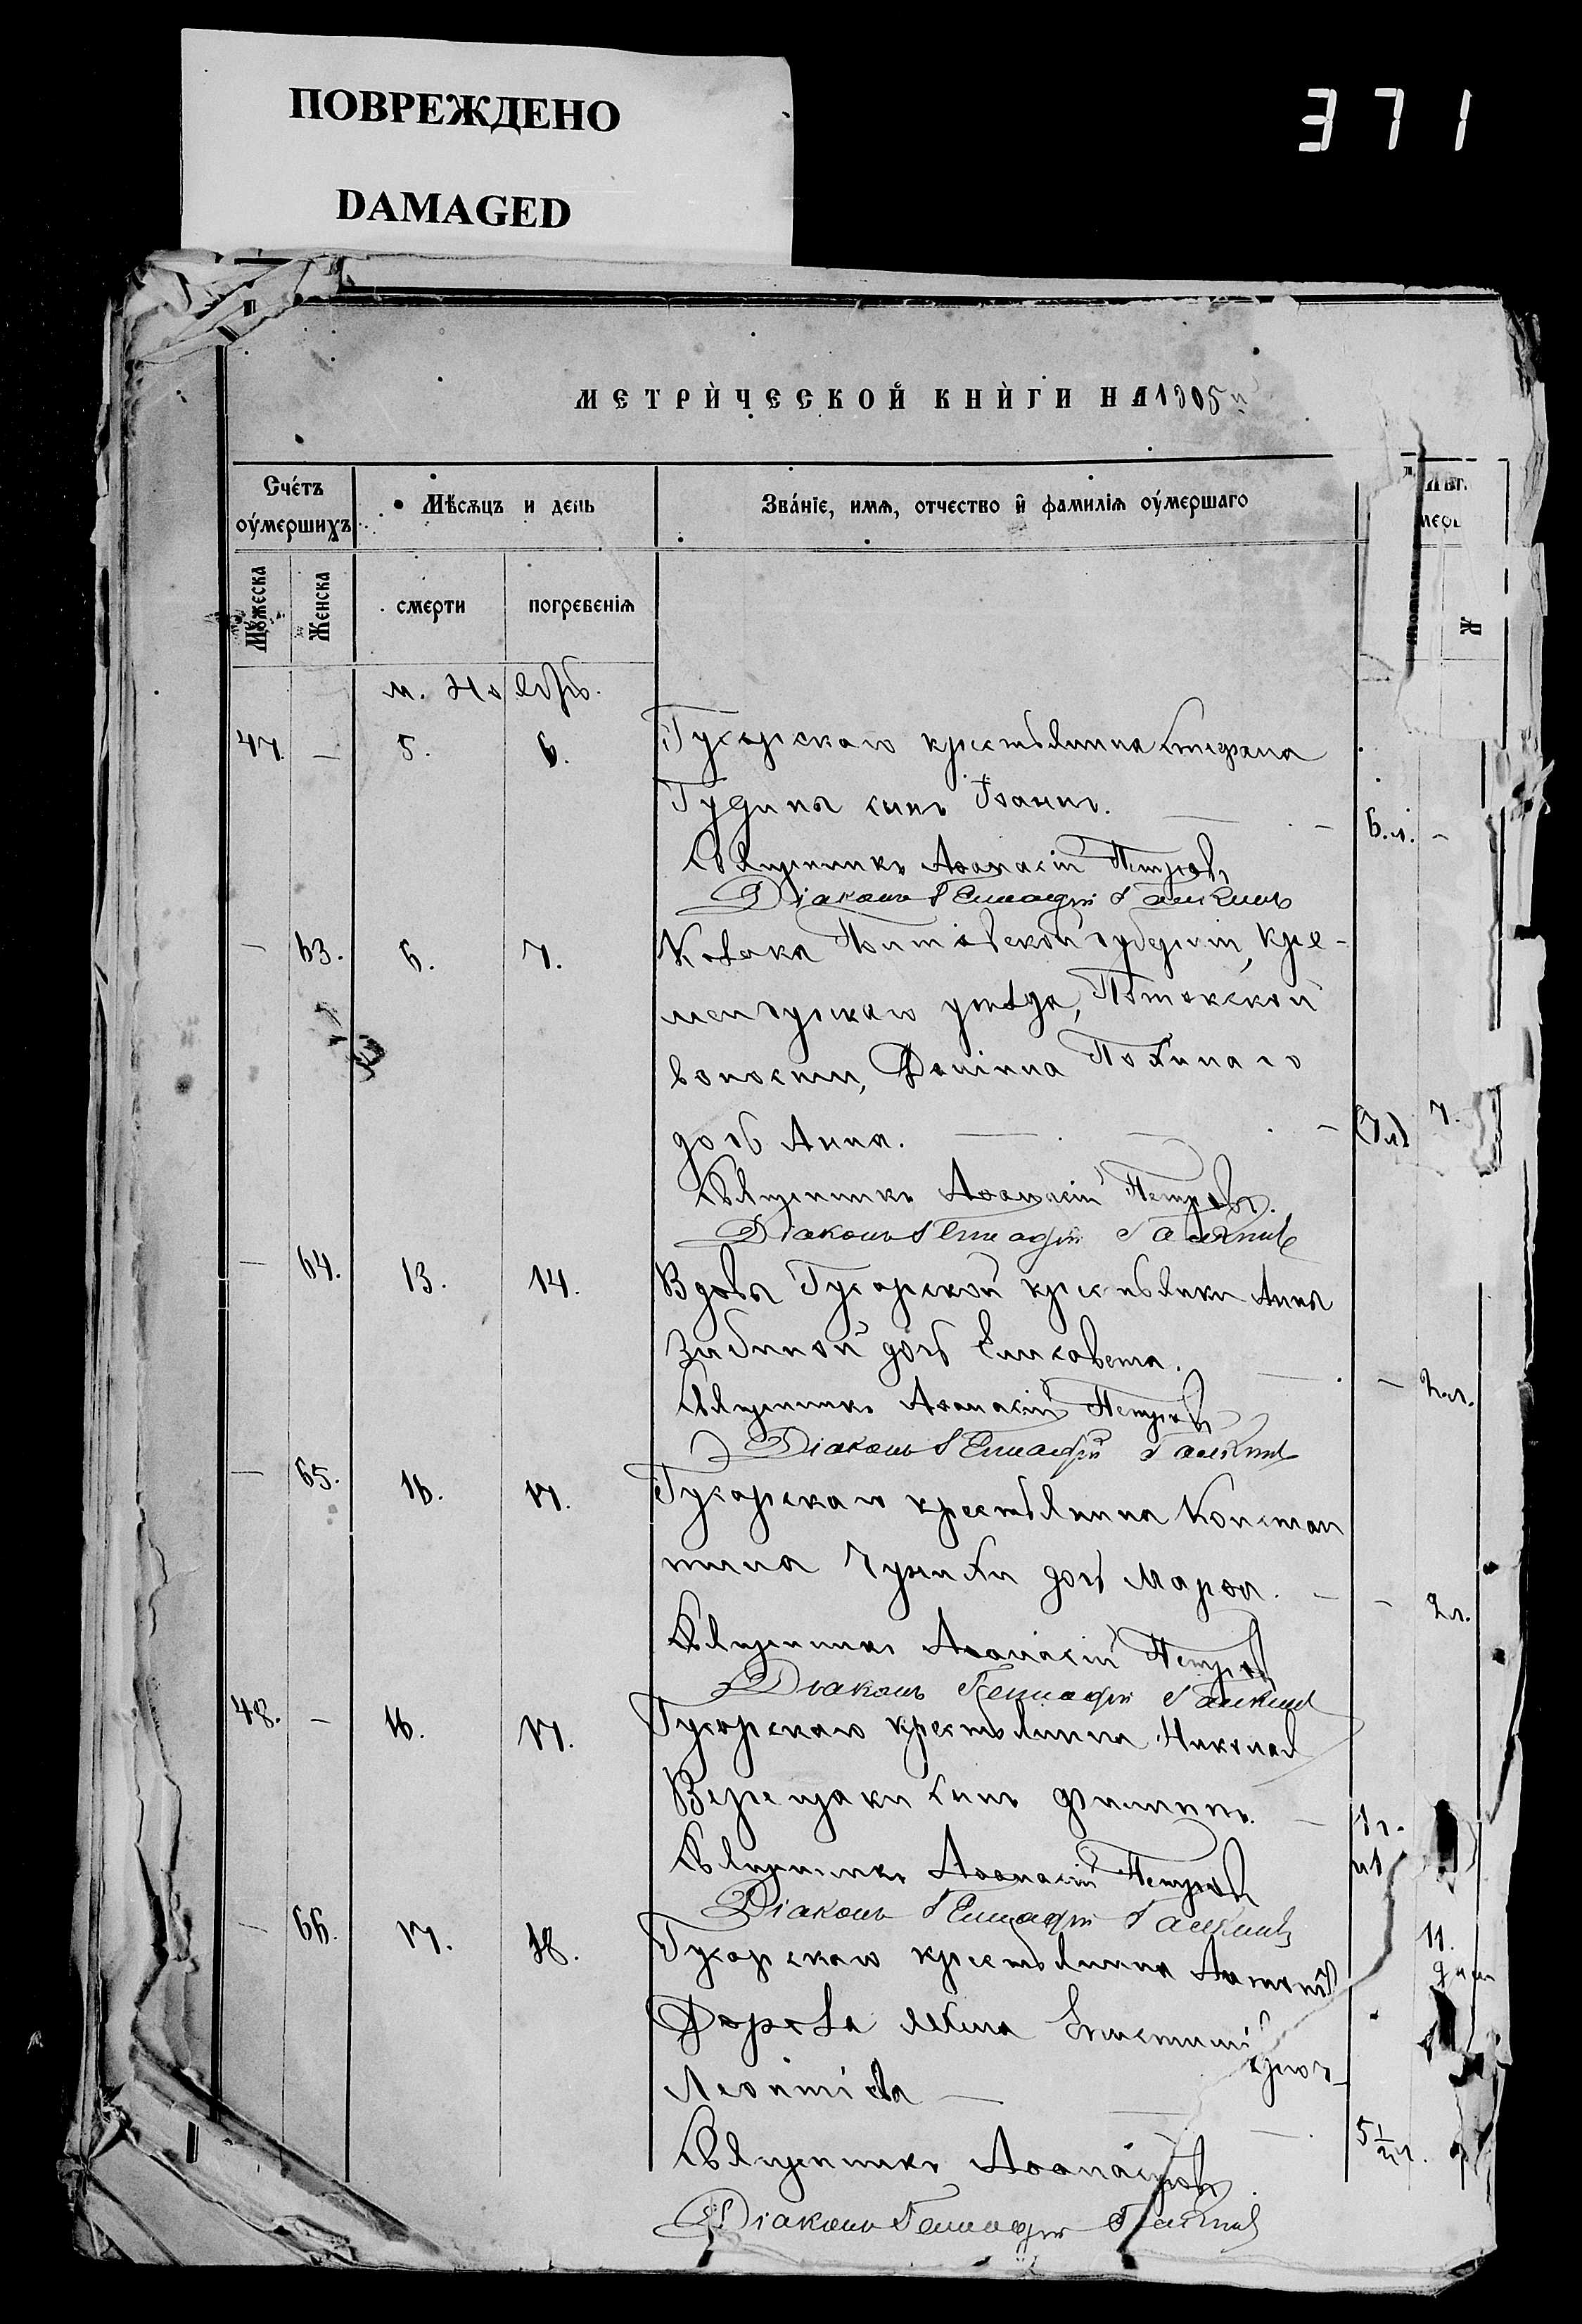 ПОВРЕЖДЕНО
DAMAGED
371
МЕТРИЧЕСКОЙ КНИГИ НА 1905
Счетъ
оумершихъ
Мѣсяцъ и день
Званіе, имя, отчество и фамилія оумершаго
Мужеска
Женска
смерти
погребенія
м. Ноябрь.
47. — 5. 6. Гусарскаго крестьянина Стефана
Гудимы сынъ Іоаннъ. — 6.л. —
Священникъ Аѳанасій Петровъ
Діаконъ Геннадій Галкинъ
— 63. 6. 7. Козака Полтавской губерніи, Кре-
менчугскаго уѣзда, Потокской
волости, Даніила
дочь Анна. — (7л) 7.
Священникъ Аѳанасій Петровъ.
Діаконъ Геннадій Галкинъ
— 64. 13. 14. Вдовы Гусарской крестьянки Анны
дочь Елисавета. — 2л.
Священникъ Аѳанасій Петровъ
Діаконъ Геннадій Галкинъ
— 65. 16. 17. Гусарскаго крестьянина Констан
тина дочь Марѳа. — — 2л.
Священникъ Аѳанасій Петровъ
Діаконъ Геннадій Галкинъ
48. — 16. 17. Гусарскаго крестьянина Николая
Верещаки сынъ Филиппъ. — 1г.
Священникъ Аѳанасій Петровъ
Діаконъ Геннадій Галкинъ
— 66. 17. 18. Гусарскаго крестьянина 11.
дней
Леонтіева —
Священникъ
Діаконъ Геннадій Галкинъ